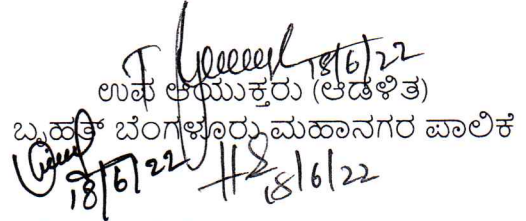 18/6/22
ಉಪ ಆಯುಕ್ತರು (ಆಡಳಿತ)
ಬೃಹತ್ ಬೆಂಗಳೂರು ಮಹಾನಗರ ಪಾಲಿಕೆ
18/6/22 18/6/22